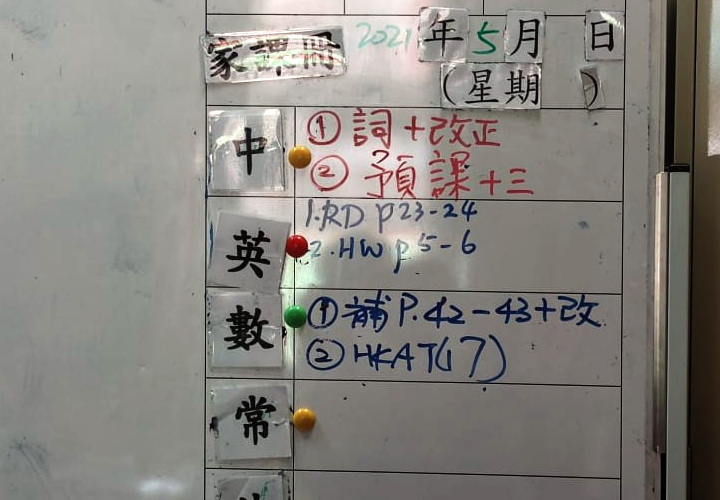 家課冊 2021年5月 日
(星期 )
中 ①詞+改正
②預課十三
英 1.RD p23-24
2.HW p5-6
數 ①補P.42-43+改
②HKAT(17)
常